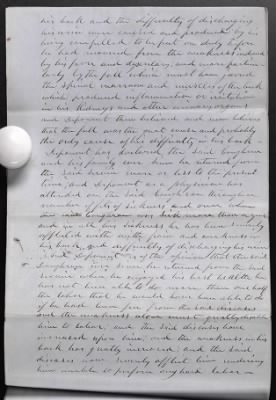 his back and the difficulty of discharging
his urine were caused and produced by his
being compelled to be put on duty before
he had recovered from the weakness induced
by his fever and dysentery, and more particu-
larly by the fall which must have jarred
the spinal marrow and muscles of the back
which produced inflammation or irritation
in his kidneys and other urinary organs
and deponent then believed and now believes
that the fall was the great cause and probably
the only cause of his difficulty in his back
Deponent has doctored the said
and his family ever since he returned from
the said service more or less to the present
time, and deponent as a physician has
attended on the said through a
number of fits of sickness, and once when
the said was sick more than a year
and in all his sickness he has been severely
afflicted with and weakness in
his back, and difficulty of discharging his urine
and deponent is of the opinion that the said
since he returned from the said
service when he enjoyed his best health he
has not been able to do more than one half
the labor that he would have been able to do
if he had been free from the said diseases
and the weakness above must greatly disable
him to labor, and the said diseases have
increased upon him, and the weakness in his
back has greatly increased and the said
diseases now severely afflict him rendering
him unable to perform any hard labor